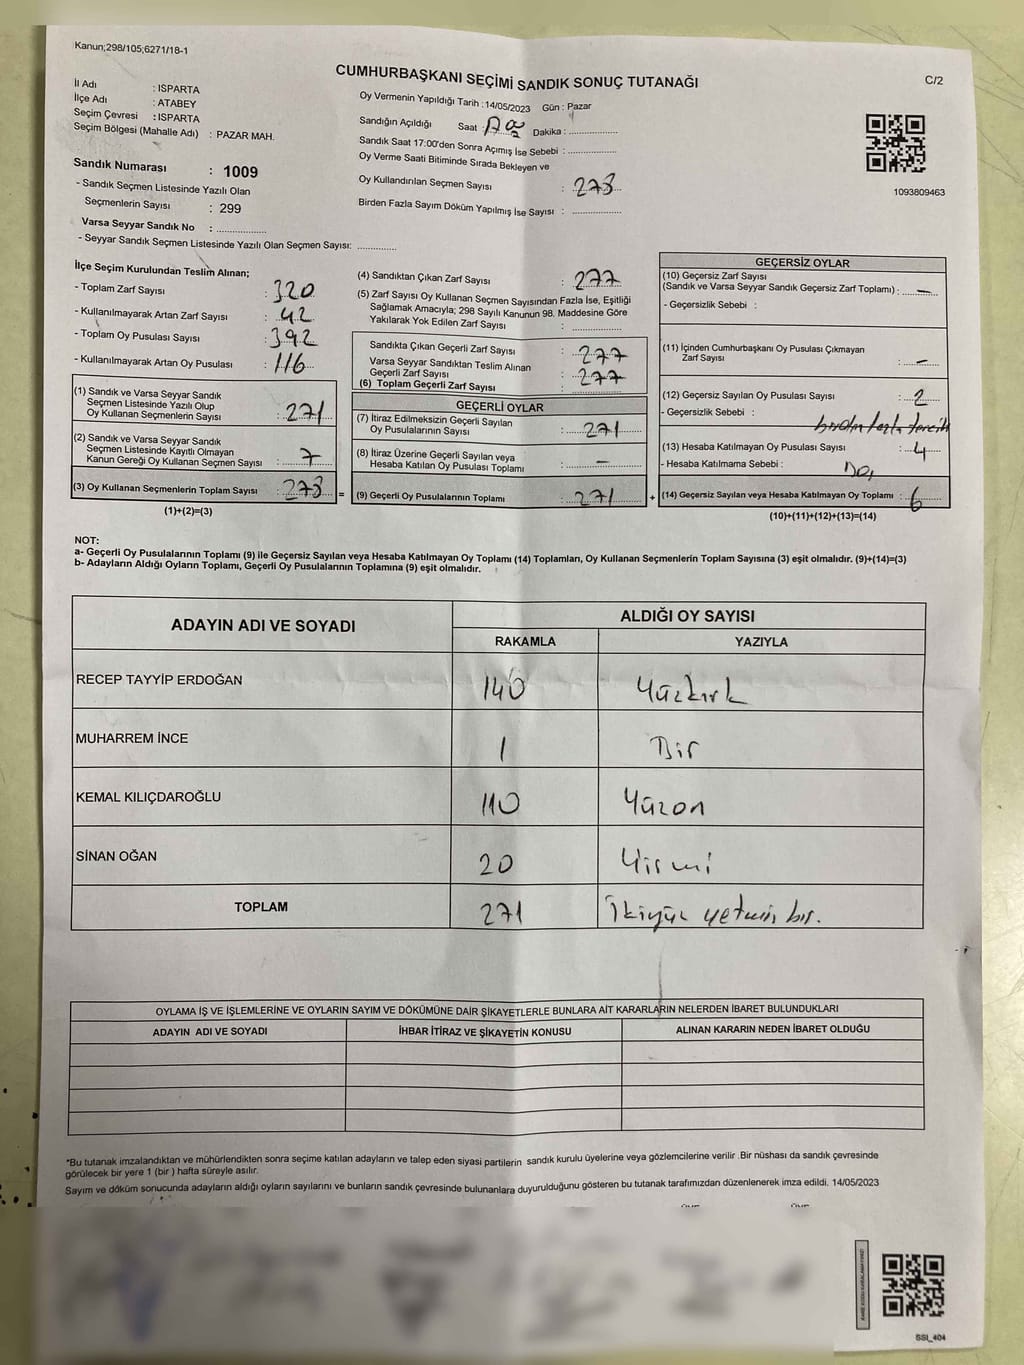 Kanun;298/105;6271/18-1
CUMHURBAŞKANI SEÇİMİ SANDIK SONUÇ TUTANAĞI
C/2
İl Adı : ISPARTA
İlçe Adı : ATABEY
Seçim Çevresi : ISPARTA
Seçim Bölgesi (Mahalle Adı) : PAZAR MAH.
Oy Vermenin Yapıldığı Tarih : 14/05/2023 Gün : Pazar
Sandığın Açıldığı Saat : Dakika : ..............
Sandık Saat 17:00'den Sonra Açımış İse Sebebi : ..............
Oy Verme Saati Bitiminde Sırada Bekleyen ve
Oy Kullandırılan Seçmen Sayısı : 278
Birden Fazla Sayım Döküm Yapılmış İse Sayısı : ..............
1093809463
Sandık Numarası : 1009
- Sandık Seçmen Listesinde Yazılı Olan
Seçmenlerin Sayısı : 299
Varsa Seyyar Sandık No : ..............
- Seyyar Sandık Seçmen Listesinde Yazılı Olan Seçmen Sayısı: ...........
İlçe Seçim Kurulundan Teslim Alınan;
- Toplam Zarf Sayısı : 320
- Kullanılmayarak Artan Zarf Sayısı : 42
- Toplam Oy Pusulası Sayısı : 392
- Kullanılmayarak Artan Oy Pusulası : 116
(1) Sandık ve Varsa Seyyar Sandık
Seçmen Listesinde Yazılı Olup
Oy Kullanan Seçmenlerin Sayısı : 271
(2) Sandık ve Varsa Seyyar Sandık
Seçmen Listesinde Kayıtlı Olmayan
Kanun Gereği Oy Kullanan Seçmen Sayısı : 7
(3) Oy Kullanan Seçmenlerin Toplam Sayısı : 278 =
(1)+(2)=(3)
(4) Sandıktan Çıkan Zarf Sayısı : 277
(5) Zarf Sayısı Oy Kullanan Seçmen Sayısından Fazla İse, Eşitliği
Sağlamak Amacıyla; 298 Sayılı Kanunun 98. Maddesine Göre
Yakılarak Yok Edilen Zarf Sayısı : ..............
Sandıkta Çıkan Geçerli Zarf Sayısı : 277
Varsa Seyyar Sandıktan Teslim Alınan
Geçerli Zarf Sayısı : 277
(6) Toplam Geçerli Zarf Sayısı : ..............
GEÇERLİ OYLAR
(7) İtiraz Edilmeksizin Geçerli Sayılan
Oy Pusulalarının Sayısı : 271
(8) İtiraz Üzerine Geçerli Sayılan veya
Hesaba Katılan Oy Pusulası Toplamı : –
(9) Geçerli Oy Pusulalarının Toplamı : 271 +
GEÇERSİZ OYLAR
(10) Geçersiz Zarf Sayısı
(Sandık ve Varsa Seyyar Sandık Geçersiz Zarf Toplamı) : –
- Geçersizlik Sebebi :
(11) İçinden Cumhurbaşkanı Oy Pusulası Çıkmayan
Zarf Sayısı : –
(12) Geçersiz Sayılan Oy Pusulası Sayısı : 2
- Geçersizlik Sebebi : birden fazla tercih
(13) Hesaba Katılmayan Oy Pusulası Sayısı : 4
- Hesaba Katılmama Sebebi :
(14) Geçersiz Sayılan veya Hesaba Katılmayan Oy Toplamı : 6
(10)+(11)+(12)+(13)=(14)
NOT:
a- Geçerli Oy Pusulalarının Toplamı (9) ile Geçersiz Sayılan veya Hesaba Katılmayan Oy Toplamı (14) Toplamları, Oy Kullanan Seçmenlerin Toplam Sayısına (3) eşit olmalıdır. (9)+(14)=(3)
b- Adayların Aldığı Oyların Toplamı, Geçerli Oy Pusulalarının Toplamına (9) eşit olmalıdır.
ADAYIN ADI VE SOYADI
ALDIĞI OY SAYISI
RAKAMLA YAZIYLA
RECEP TAYYİP ERDOĞAN 140 Yüzkırk
MUHARREM İNCE 1 Bir
KEMAL KILIÇDAROĞLU 110 Yüzon
SİNAN OĞAN 20 Yirmi
TOPLAM 271 İkiyüz yetmiş bir.
OYLAMA İŞ VE İŞLEMLERİNE VE OYLARIN SAYIM VE DÖKÜMÜNE DAİR ŞİKAYETLERLE BUNLARA AİT KARARLARIN NELERDEN İBARET BULUNDUKLARI
ADAYIN ADI VE SOYADI İHBAR İTİRAZ VE ŞİKAYETİN KONUSU ALINAN KARARIN NEDEN İBARET OLDUĞU
*Bu tutanak imzalandıktan ve mühürlendikten sonra seçime katılan adayların ve talep eden siyasi partilerin sandık kurulu üyelerine veya gözlemcilerine verilir .Bir nüshası da sandık çevresinde
görülecek bir yere 1 (bir ) hafta süreyle asılır.
Sayım ve döküm sonucunda adayların aldığı oyların sayılarını ve bunların sandık çevresinde bulunanlara duyurulduğunu gösteren bu tutanak tarafımızdan düzenlenerek imza edildi. 14/05/2023
SSI_404